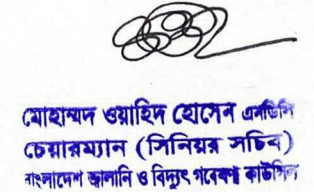 মোহাম্মদ ওয়াহিদ হোসেন এনডিসি
চেয়ারম্যান (সিনিয়র সচিব)
বাংলাদেশ জ্বালানি ও বিদ্যুৎ গবেষণা কাউন্সিল